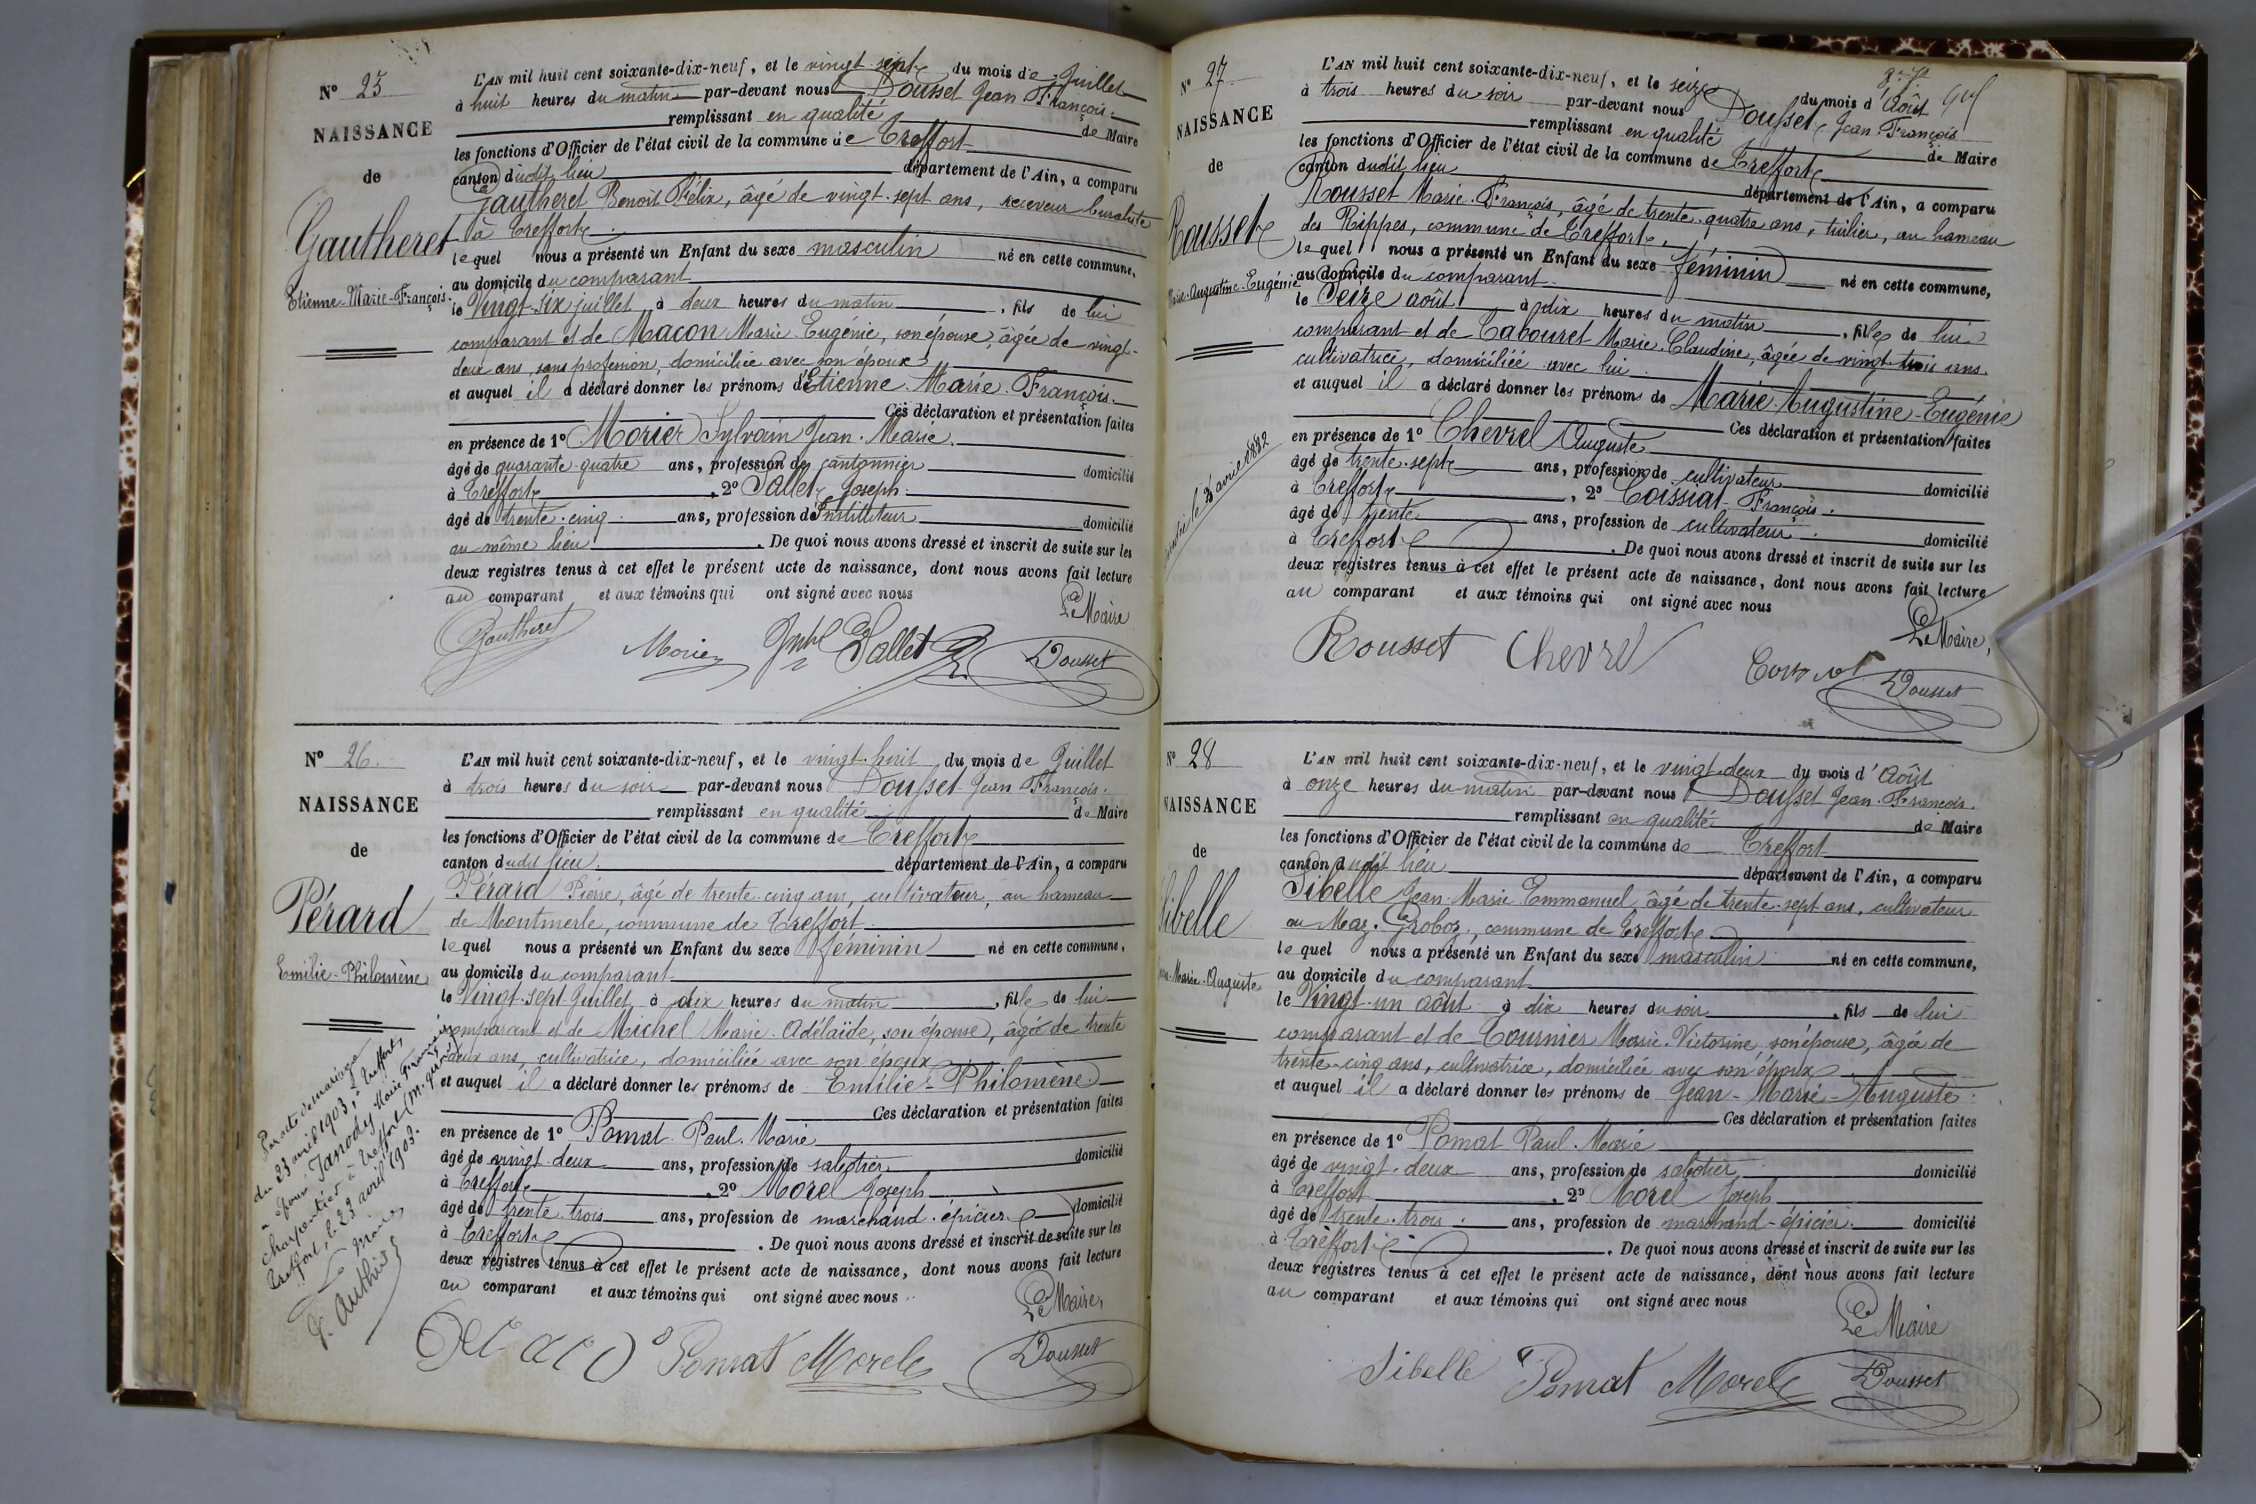 N° 25
NAISSANCE
de
Gautheret
Etienne-Marie-François.
L'AN mil huit cent soixante-dix-neuf, et le vingt-sept du mois de Juillet
à huit heures du matin par-devant nous Dousset Jean François.
remplissant en qualité de Maire
les fonctions d'Officier de l'état civil de la commune de Treffort
canton dudit lieu département de l'Ain, a comparu
Gautheret Benoît Félix, âgé de vingt-sept ans, receveur buraliste
à Treffort.
lequel nous a présenté un Enfant du sexe masculin né en cette commune,
au domicile du comparant
le Vingt-six juillet à deux heures du matin, fils de lui
comparant et de Macon Marie Eugénie, son épouse, âgée de vingt-
deux ans, sans profession, domiciliée avec son époux
et auquel il a déclaré donner les prénoms d'Etienne-Marie-François.
Ces déclaration et présentation faites
en présence de 1° Morier Sylvain Jean-Marie.
âgé de quarante-quatre ans, profession de cantonnier domicilié
à Treffort, 2° Sallet Joseph.
âgé de trente-cinq ans, profession d'Instituteur domicilié
au même lieu. De quoi nous avons dressé et inscrit de suite sur les
deux registres tenus à cet effet le présent acte de naissance, dont nous avons fait lecture
au comparant et aux témoins qui ont signé avec nous
Le Maire
Gautheret Morier Jph Sallet Dousset
N° 26
NAISSANCE
de
Pérard
Emilie-Philomène
Par acte de mariage
du 23 avril 1903, à Treffort,
a épousé Janody Marie François
charpentier à Treffort
Treffort, le 23 avril 1903.
Le Maire
J. Authier
L'AN mil huit cent soixante-dix-neuf, et le vingt-huit du mois de Juillet
à trois heures du soir par-devant nous Dousset Jean François.
remplissant en qualité de Maire
les fonctions d'Officier de l'état civil de la commune de Treffort
canton dudit lieu. département de l'Ain, a comparu
Pérard Pierre, âgé de trente-cinq ans, cultivateur, au hameau
de Montmerle, commune de Treffort.
lequel nous a présenté un Enfant du sexe féminin né en cette commune,
au domicile du comparant
le Vingt-sept Juillet, à dix heures du matin, fille de lui
comparant et de Michel Marie-Adélaïde, son épouse, âgée de trente
deux ans, cultivatrice, domiciliée avec son époux
et auquel il a déclaré donner les prénoms de Emilie-Philomène
Ces déclaration et présentation faites
en présence de 1° Pomat Paul-Marie
âgé de vingt-deux ans, profession de sabotier domicilié
à Treffort, 2° Morel Joseph
âgé de trente-trois ans, profession de marchand-épicier domicilié
à Treffort. De quoi nous avons dressé et inscrit de suite sur les
deux registres tenus à cet effet le présent acte de naissance, dont nous avons fait lecture
au comparant et aux témoins qui ont signé avec nous
Le Maire,
Pérard Pomat Morel Dousset
N° 27
NAISSANCE
de
Rousset
Marie-Augustine-Eugénie
avril 1882
L'AN mil huit cent soixante-dix-neuf, et le seize du mois d'Août
à trois heures du soir par-devant nous Dousset Jean-François
remplissant en qualité de Maire
les fonctions d'Officier de l'état civil de la commune de Treffort
canton dudit lieu département de l'Ain, a comparu
Rousset Marie-François, âgé de trente-quatre ans, tuilier, au hameau
des Rippes, commune de Treffort,
lequel nous a présenté un Enfant du sexe féminin né en cette commune,
au domicile du comparant.
le Seize août à dix heures du matin, fille de lui
comparant et de Tabouret Marie-Claudine, âgée de vingt-trois ans.
cultivatrice, domiciliée avec lui.
et auquel il a déclaré donner les prénoms de Marie-Augustine-Eugénie
Ces déclaration et présentation faites
en présence de 1° Chevrel Auguste
âgé de trente-sept ans, profession de cultivateur domicilié
à Treffort, 2° Coissiat François.
âgé de trente ans, profession de cultivateur. domicilié
à Treffort. De quoi nous avons dressé et inscrit de suite sur les
deux registres tenus à cet effet le présent acte de naissance, dont nous avons fait lecture
au comparant et aux témoins qui ont signé avec nous
Le Maire,
Rousset Chevrel Dousset
N° 28
NAISSANCE
de
Sibelle
Jean-Marie-Auguste
L'AN mil huit cent soixante-dix-neuf, et le vingt-deux du mois d'Août
à onze heures du matin par-devant nous Dousset Jean-François.
remplissant en qualité de Maire
les fonctions d'Officier de l'état civil de la commune de Treffort
canton dudit lieu département de l'Ain, a comparu
Sibelle Jean-Marie Emmanuel, âgé de trente-sept ans, cultivateur
au Maz-Groboz, commune de Treffort
lequel nous a présenté un Enfant du sexe masculin né en cette commune,
au domicile du comparant
le Vingt-un août à dix heures du soir, fils de lui
comparant et de Tournier Marie-Victorine, son épouse, âgée de
trente-cinq ans, cultivatrice, domiciliée avec son époux
et auquel il a déclaré donner les prénoms de Jean-Marie-Auguste.
Ces déclaration et présentation faites
en présence de 1° Pomat Paul-Marie
âgé de vingt-deux ans, profession de sabotier domicilié
à Treffort, 2° Morel Joseph
âgé de trente-trois ans, profession de marchand-épicier. domicilié
à Treffort. De quoi nous avons dressé et inscrit de suite sur les
deux registres tenus à cet effet le présent acte de naissance, dont nous avons fait lecture
au comparant et aux témoins qui ont signé avec nous
Le Maire
Sibelle Pomat Morel Dousset